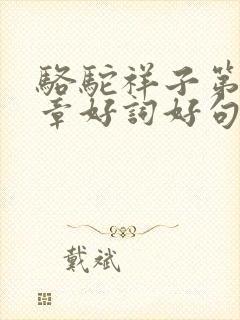 駱駝祥子第
章好詞好句
戴斌